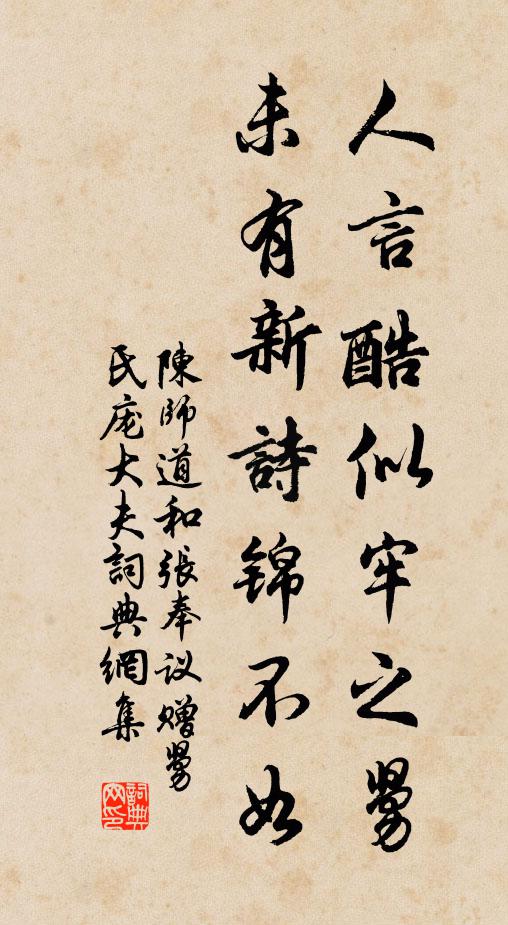 人言酷似牢之舅
未有新詩錦不如
陳師道和張奉议赠舅
氏庞大夫詞典網集
詞典网印